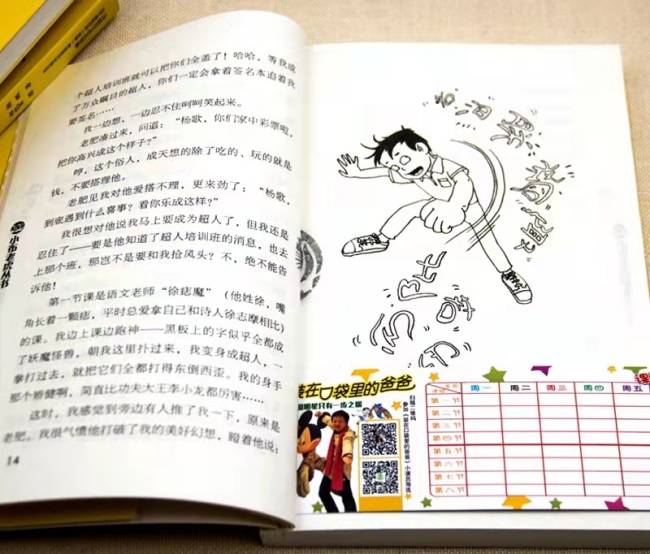 个超人培训班就可以把你们全盖了！哈哈，等我成
了万众瞩目的超人，你们一定会拿着签名本追着我
要签名……
我一边想，一边忍不住呵呵笑起来。
老肥凑过来，问道：“杨歌，你们家中彩票啦，
把你高兴成这个样子？”
哼，这个俗人，成天想的除了吃的、玩的就是
钱，不要搭理他。
老肥见我对他爱搭不理，更来劲了：“杨歌，
到底遇到什么喜事？看你乐成这样？”
我很想对他说我马上要成为超人了，但我还是
忍住了——要是他知道了超人培训班的消息，也去
上那个班，那岂不是要和我抢风头？不，绝不能告
诉他！
第一节课是语文老师“徐痣魔”（他姓徐，嘴
角长着一颗痣，平时总爱拿自己和诗人徐志摩相比）
的课。我边上课边跑神——黑板上的字似乎全都成
了妖魔怪兽，朝我这里扑过来，我变身成超人，一
拳打过去，就把它们全都打得东倒西歪。我的身手
那个矫健啊，简直比功夫大王李小龙都厉害……
这时，我感觉到旁边有人推了我一下，原来是
老肥。我很气愤他打破了我的美好幻想，瞪着他说：
14
小布老虎丛书
装在口袋里的爸爸
明星只有一步之遥
扫描二维码
参加《装在口袋里的爸爸》小演员海选
课
周一 周二 周三 周四 周五
第一节
第二节
第三节
第四节
第五节
第六节
第七节
第八节